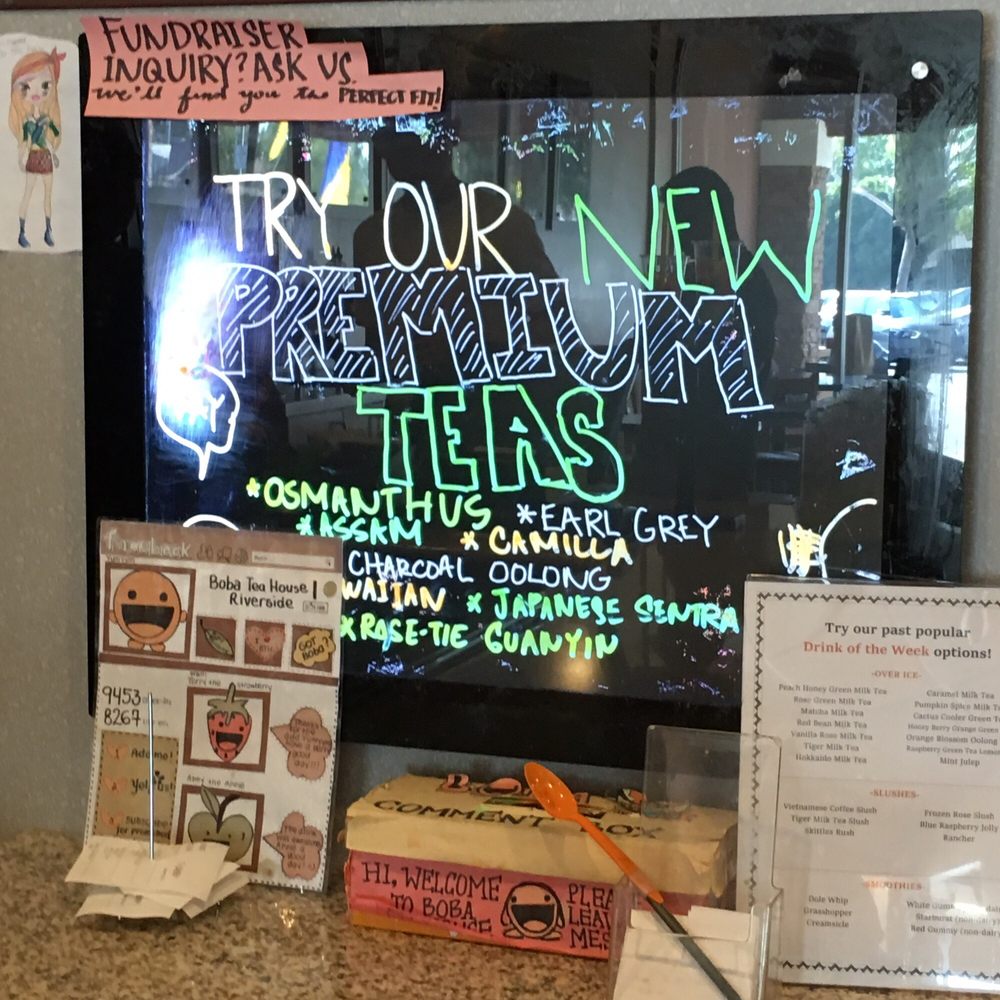 FUNDRAISER
INQUIRY? ASK US.
we'll find you the PERFECT FIT!
TRY OUR NEW
PREMIUM
TEAS
*OSMANTHUS *EARL GREY
*ASSAM * CAMILLA
CHARCOAL OOLONG
WAIIAN * JAPANESE SENTRA
*ROSE-TIE GUANYIN
Boba Tea House |
Riverside
GOT
BOBA?
9453
8267
COMMENT BOX
HI, WELCOME
TO BOBA
PLEA
LEAV
MES
Try our past popular
Drink of the Week options!
-OVER ICE-
Peach Honey Green Milk Tea
Rose Green Milk Tea
Matcha Milk Tea
Red Bean Milk Tea
Vanilla Rose Milk Tea
Tiger Milk Tea
Hokkaido Milk Tea
Caramel Milk Tea
Pumpkin Spice Milk T
Cactus Cooler Green T
Honey Berry Orange Green
Orange Blossom Oolong
Raspberry Green Tea Lemon
Mint Julep
-SLUSHES-
Vietnamese Coffee Slush
Tiger Milk Tea Slush
Skittles Rush
Frozen Rose Slush
Blue Raspberry Jolly
Rancher
-SMOOTHIES-
Dole Whip
Grasshopper
Creamsicle
White Gumm
Starburst (non-dairy)
Red Gummy (non-dairy